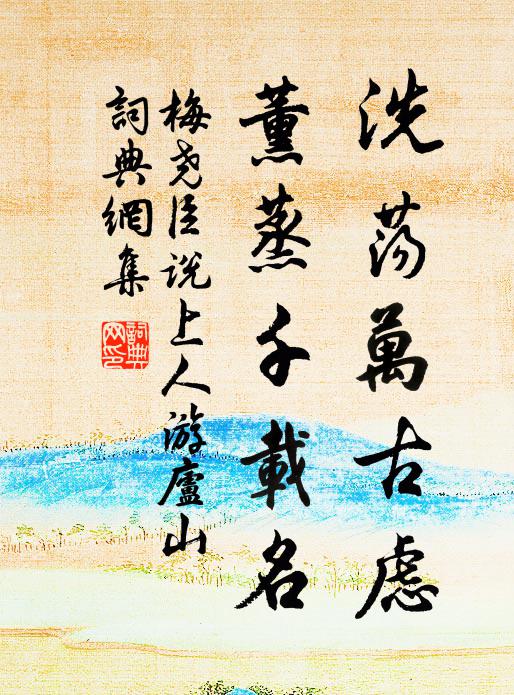 洗荡萬古慮
薰蒸千載名
梅尧臣说上人游廬山
詞典網集
詞典网印